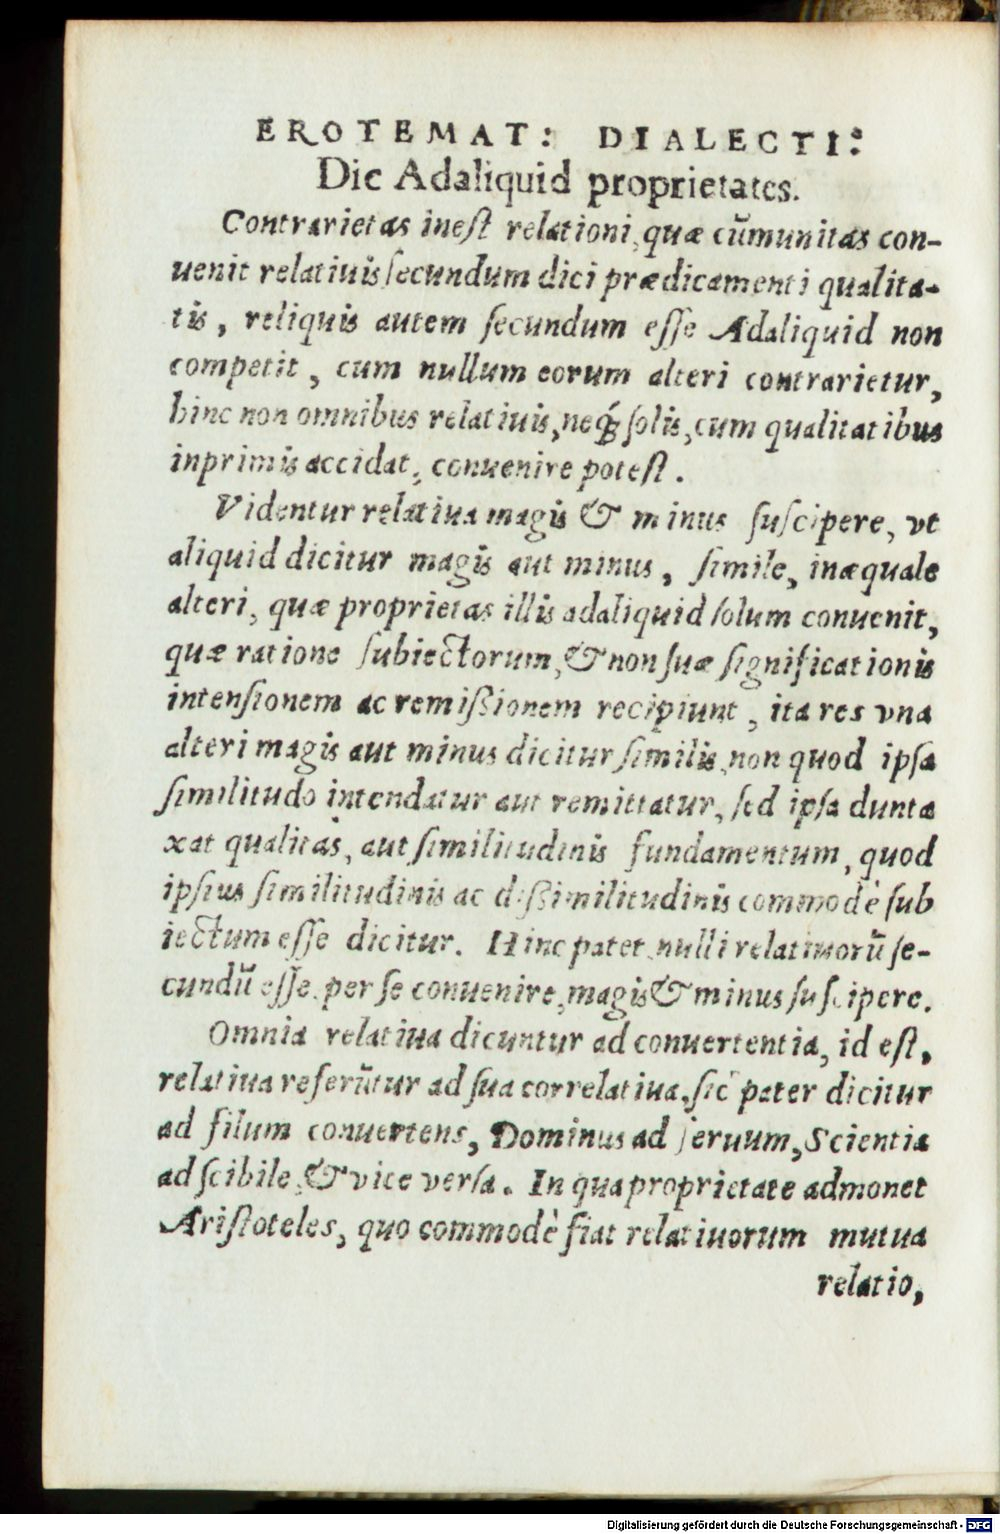 EROTEMAT: DIALECTI:
Dic Adaliquid proprietates.
Contrarietas inest relationi, quæ cũmunitas con-
uenit relatiuis secundum dici prædicamenti qualita-
tis, reliquis autem secundum esse Adaliquid non
competit, cum nullum eorum alteri contrarietur,
hinc non omnibus relatiuis, neq́ solis, cum qualitatibus
inprimis accidat, conuenire potest.
Videntur relatiua magis & minus suscipere, vt
aliquid dicitur magis aut minus, simile, inæquale
alteri, quæ proprietas illis adaliquid solum conuenit,
quæ ratione subiectorum, & non suæ significationis
intensionem ac remißionem recipiunt, ita res vna
alteri magis aut minus dicitur similis, non quod ipsa
similitudo intendatur aut remittatur, sed ipsa dunta
xat qualitas, aut similitudinis fundamentum, quod
ipsius similitudinis ac dißimilitudinis commodè sub
iectum esse dicitur. Hinc patet, nulli relatiuorũ se-
cundũ esse, per se conuenire, magis & minus suscipere.
Omnia relatiua dicuntur ad conuertentia, id est,
relatiua referũtur ad sua correlatiua, sic pater dicitur
ad filium conuertens, Dominus ad seruum, Scientia
ad scibile, & vice versa. In qua proprietate admonet
Aristoteles, quo commodè fiat relatiuorum mutua
relatio,
Digitalisierung gefördert durch die Deutsche Forschungsgemeinschaft - DFG